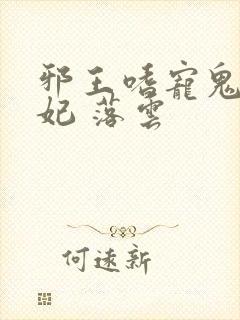 邪王嗜寵鬼
妃 落雲
何遠新